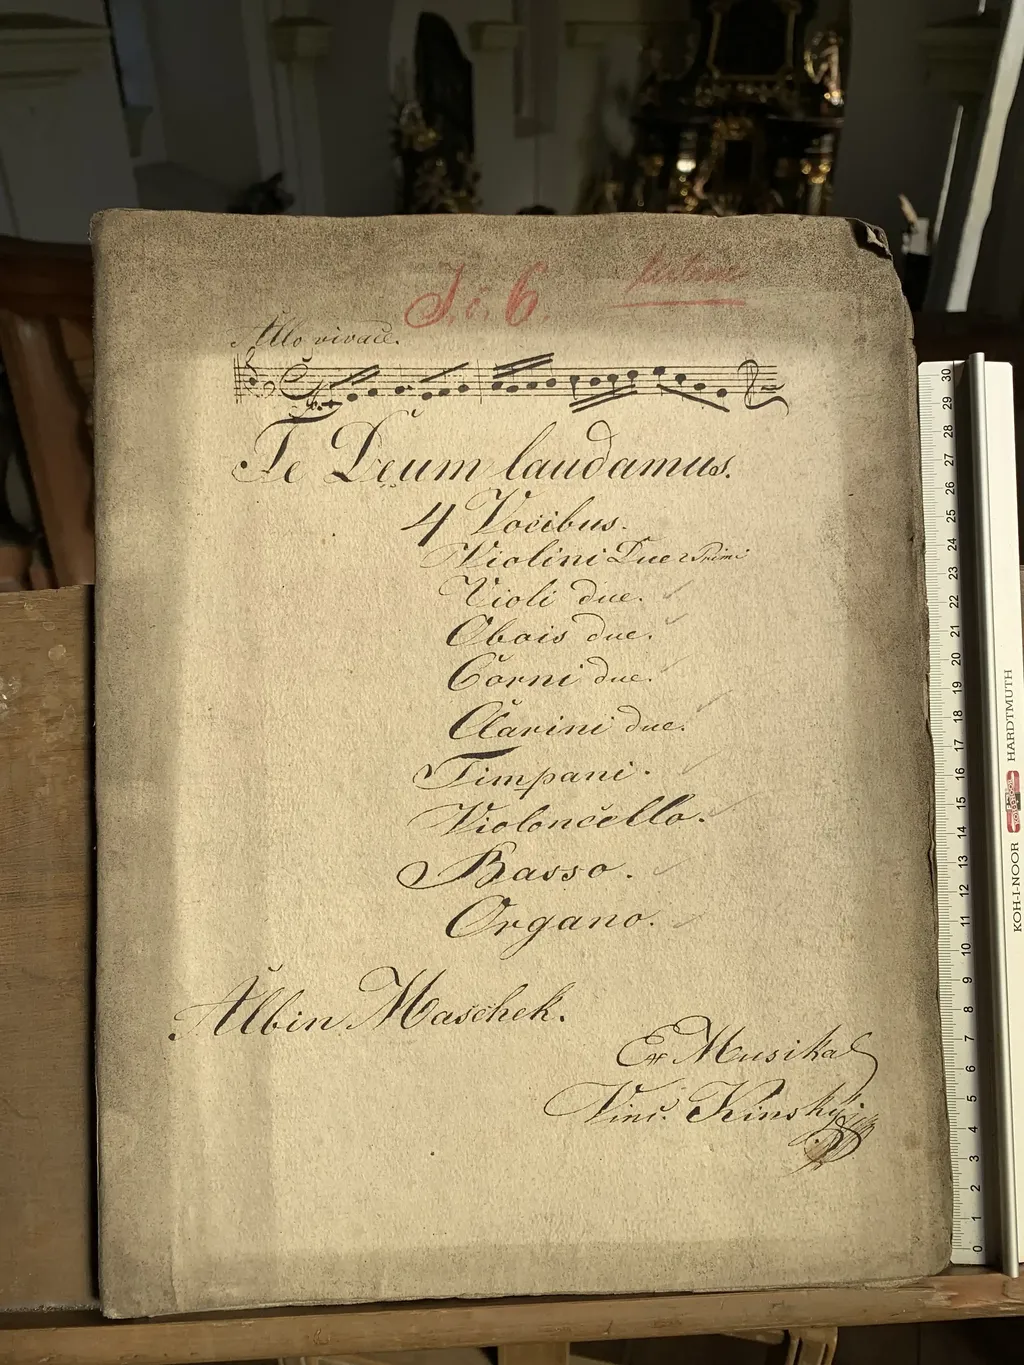 J. c. 6.
Allo vivace.
Te Deum laudamus.
4 Vocibus.
Violini Due Primi
Violi due.
Obois due.
Corni due.
Clarini due.
Timpani.
Violoncello.
Basso.
Organo.
Albin Maschek.
Ex Musika
Vinc. Kinský
30
29
28
27
26
25
24
23
22
21
20
19
18
17
16
15
14
13
12
11
10
9
8
7
6
5
4
3
2
1
0
KOH-I-NOOR HARDTMUTH